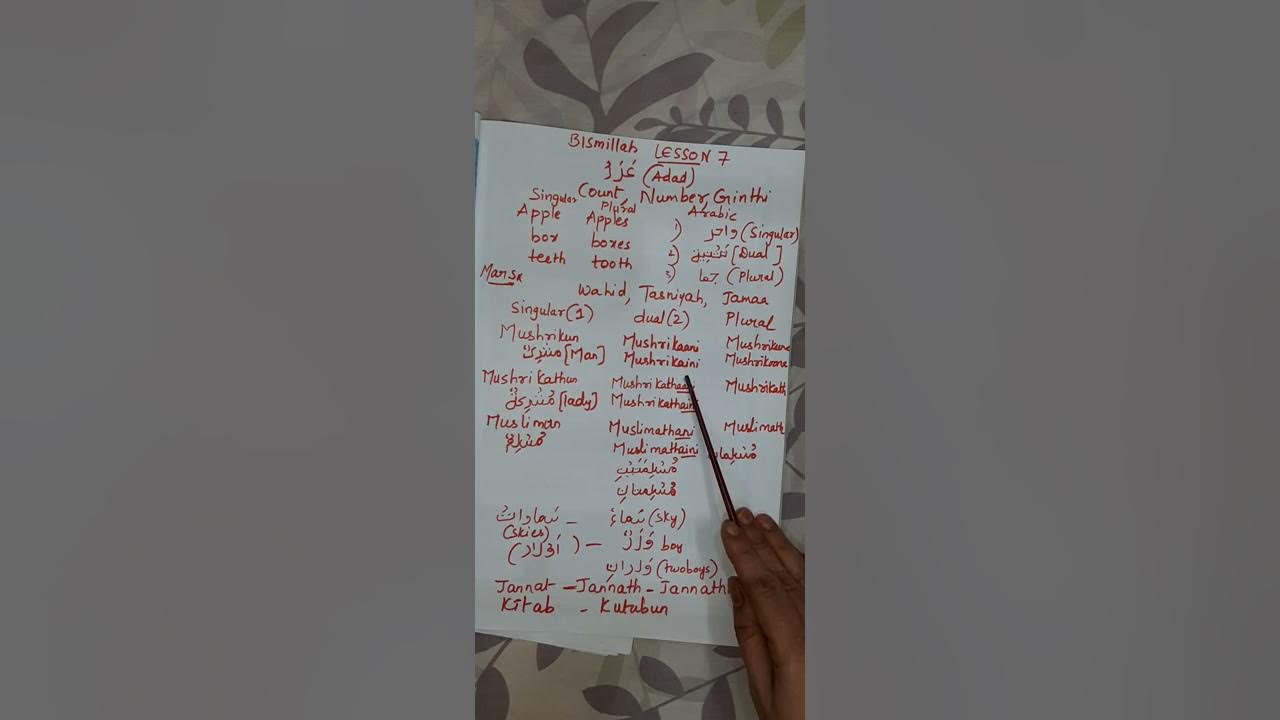 Bismillah LESSON 7
عَدَدْ (Adad)
Count, Number, Ginthi
Singular Plural Arabic
Apple Apples 1) واحد (Singular)
box boxes 2) [Dual]
teeth tooth 3) جما (Plural)
Wahid, Tasniyah, Jamaa
Singular (1) dual (2) Plural
Mushrikun Mushrikaani
[Man] Mushrikaini Mushrikoona
Mushrikathun Mushrikathaani Mushrikath
[lady] Mushrikathaini
Musliman Muslimathani Muslimath
مُسْلِمٌ Muslimathaini
مُسْلِمَتَيْنِ
مُسْلِمَتَانِ
سَمَاوَاتٌ – سَمَاءٌ (sky)
(skies)
(اَوْلَاد) – وَلَدٌ boy
وَلَدَانِ (twoboys)
Jannat – Jannath – Jannath
Kitab - Kutubun